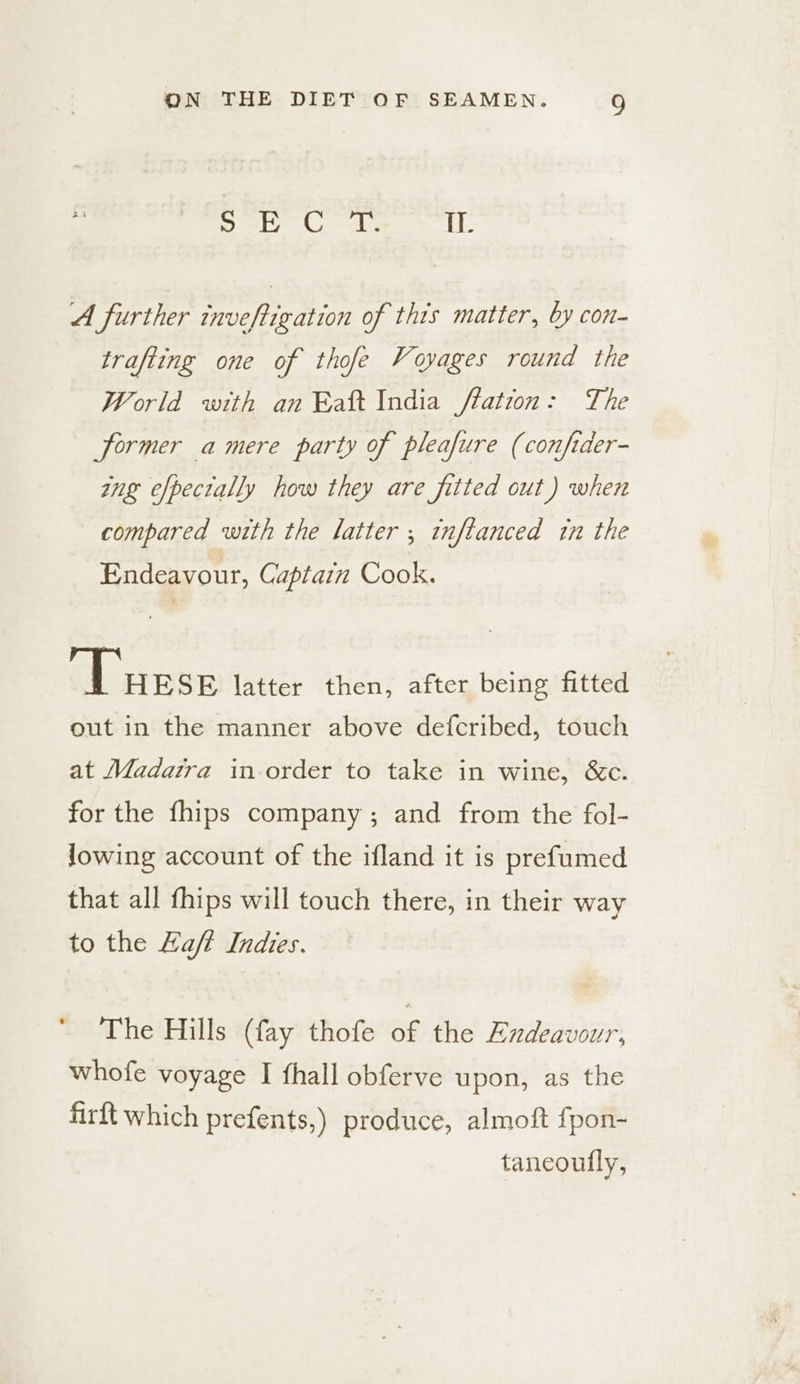 ON THE DIET OF SEAMEN. 9
SECT. II.
A further inveſtigation of this matter, by con-
traſting one of thoſe Voyages round the
World with an Eaſt India ſtation: The
former a mere party of pleaſure (conſider-
ing eſpecially how they are fitted out) when
compared with the latter; inſtanced in the
Endeavour, Captain Cook.
THESE latter then, after being fitted
out in the manner above deſcribed, touch
at Madaira in order to take in wine, &c.
for the ſhips company; and from the fol-
lowing account of the iſland it is preſumed
that all ſhips will touch there, in their way
to the Eaſt Indies.
The Hills (ſay thoſe of the Endeavour,
whoſe voyage I ſhall obſerve upon, as the
firſt which preſents,) produce, almoſt ſpon-
taneouſly,